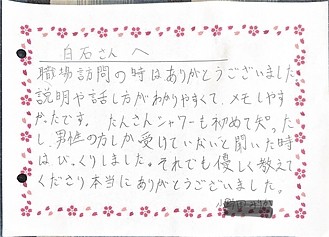 白石さんへ
職場訪問の時はありがとうございました
説明や話し方がわかりやすくて、メモしやす
かったです。たんさんシャワーも初めて知ったし、
男性の方しか受けていないと聞いた時
はびっくりしました。それでも優しく教えて
くださり本当にありがとうございました。